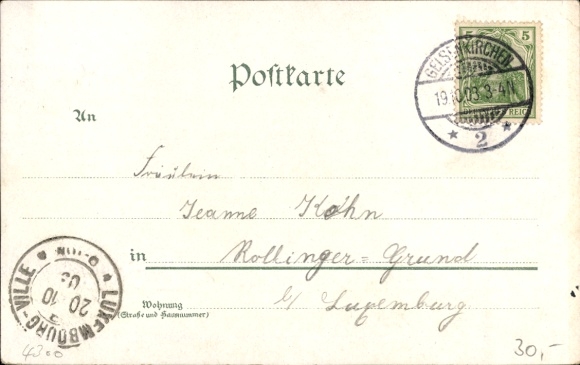 5 5
GELSENKIRCHEN
19.10.03. 3-4N.
REICH
* 2 *
Postkarte
An
Fräulein
Jeanne Kohn
in Rollinger = Grund
b/ Luxemburg
Wohnung
(Straße und Hausnummer)
LUXEMBOURG-VILLE
20 10
4300
30,-